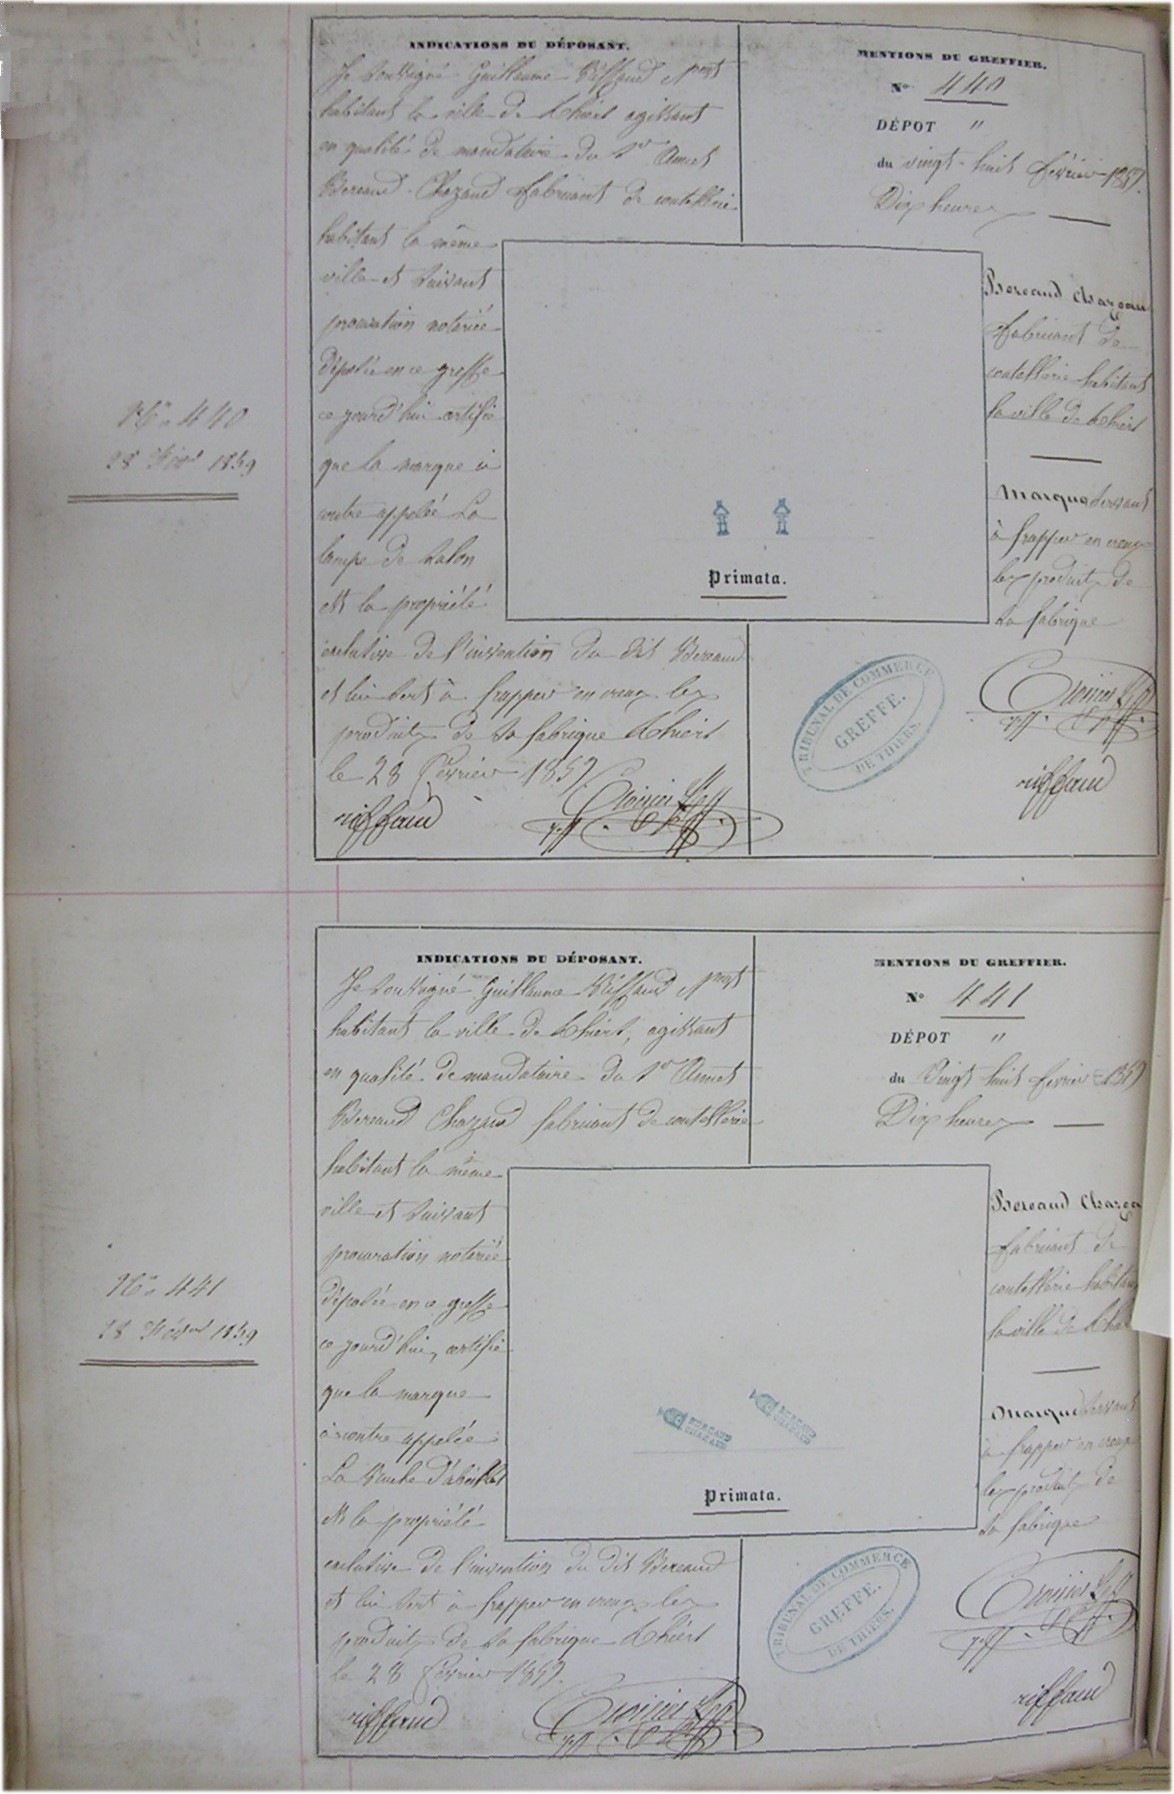 INDICATIONS DU DÉPOSANT.
Je soussigné Guillaume Riffaud
habitant la ville de Thiers agissant
en qualité de mandataire du Sr Annet
Bereaud Chazaud fabricant de coutellerie
habitant la même
ville et suivant
procuration notariée
déposée en ce greffe
ce jourd'hui certifie
que la marque ci
contre appelée La
lampe de Salon
est la propriété
exclusive de l'invention du dit Bereaud
et lui sert à frapper en creux les
produits de sa fabrique Thiers
le 28 février 1859
riffaud
MENTIONS DU GREFFIER.
No 440
DÉPOT "
du vingt-huit février 1859.
Dix heures
Bereaud Chazau
fabricant de
coutellerie habitant
la ville de Thiers
Marque servant
à frapper en creux
les produits de
sa fabrique
riffaud
Primata.
TRIBUNAL DE COMMERCE
GREFFE.
DE THIERS.
No 440
28 Févr 1859
INDICATIONS DU DÉPOSANT.
Je soussigné Guillaume Riffaud
habitant la ville de Thiers, agissant
en qualité de mandataire du Sr Annet
Bereaud Chazaud fabricant de coutellerie
habitant la même
ville et suivant
procuration notariée
déposée en ce greffe
ce jourd'hui, certifie
que la marque
ci contre appelée
La Ruche d'abeilles
est la propriété
exclusive de l'invention du dit Bereaud
et lui sert à frapper en creux les
produits de sa fabrique Thiers
le 28 février 1859.
riffaud
MENTIONS DU GREFFIER.
No 441
DÉPOT "
du Vingt huit février 1859
Dix heures
Bereaud Chaza
fabricant de
coutellerie habitan
la ville de Thie
Marque servant
à frapper en creux
les produits de
sa fabrique
riffaud
BEREAUD
CHAZAUD
BEREAUD
CHAZAUD
Primata.
TRIBUNAL DE COMMERCE
GREFFE.
DE THIERS.
No 441
28 Févr 1859